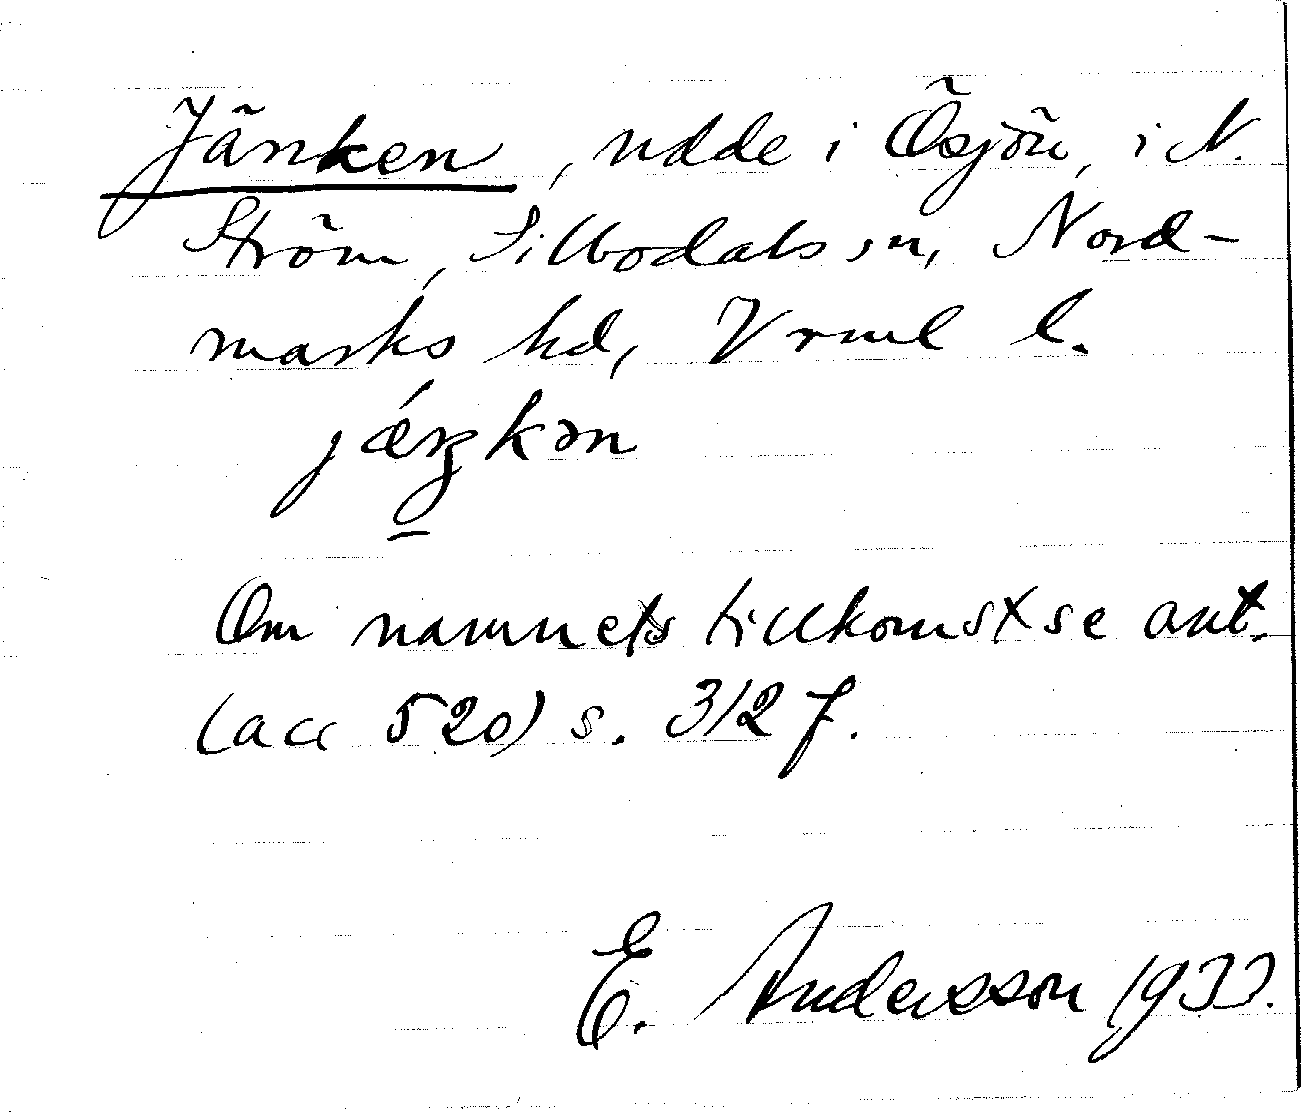 Jänken, udde i Ösjön, i N.
Ström, Sillbodals sn, Nord-
marks hd, Vrml l.
jǽŋkən
Om namnets tillkomst se ant.
(acc 520) s. 312 f.
E. Andersson 1933.